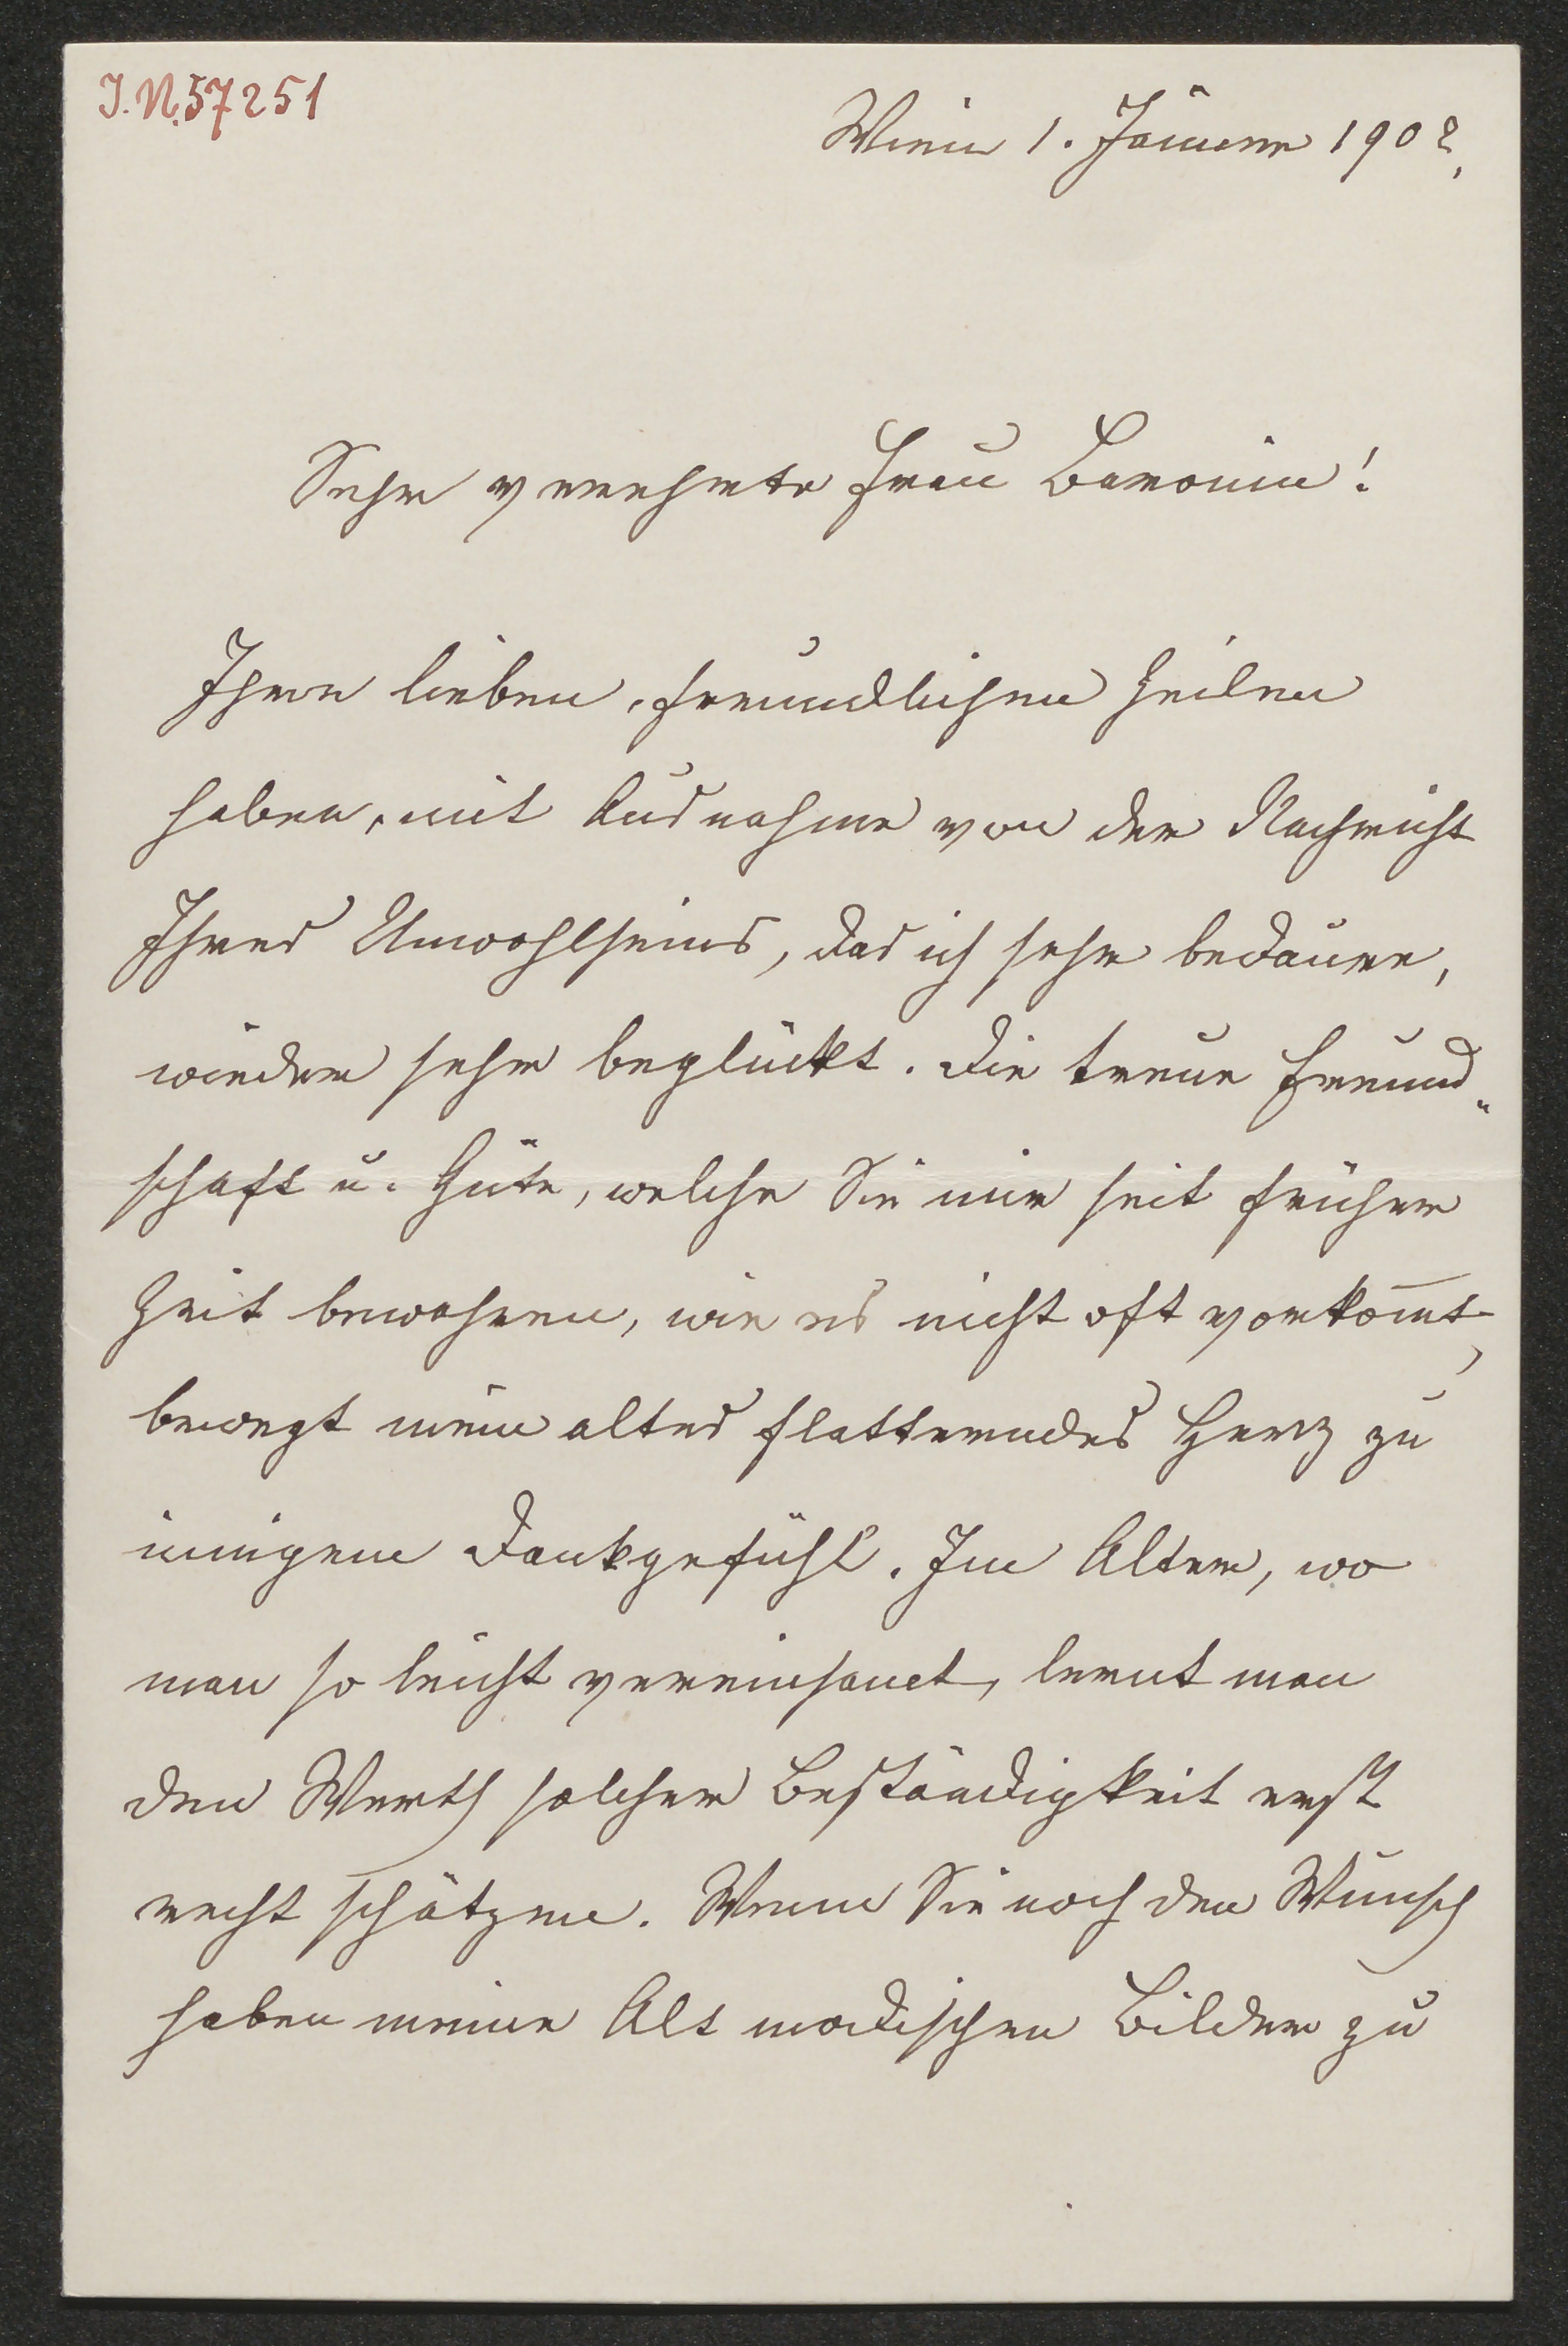 J.N.57251
Wien 1. Jänner 1902,
Sehr verehrte Frau Baronin!
Ihre lieben, freundlichen Zeilen
haben, mit Ausnahme von der Nachricht
Ihres Unwohlseins, das ich sehr bedaure,
wieder sehr beglückt. Die treue Freund„
schaft u. Güte, welche Sie mir seit früher
Zeit bewahren, wie es nicht oft vorkom̅t,
bewegt mein altes flatterndes Herz zu
innigem Dankgefühl. Im Alter, wo
man so leicht vereinsamt, lernt man
den Werth solcher Beständigkeit erst
recht schätzen. Wenn Sie noch den Wunsch
haben meine Alt modischen Bilder zu